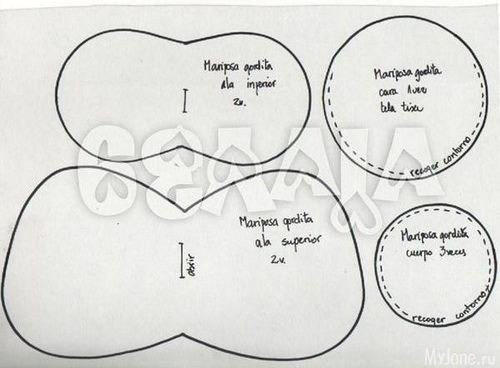 Mariposa gordita
ala inferior
2v.
Mariposa gordita
cara 1 vez
tela tisu
recoger contorno
Mariposa gordita
ala superior
2v.
abrir
Mariposa gordita
cuerpo 3 veces
recoger contorno
MyJane.ru